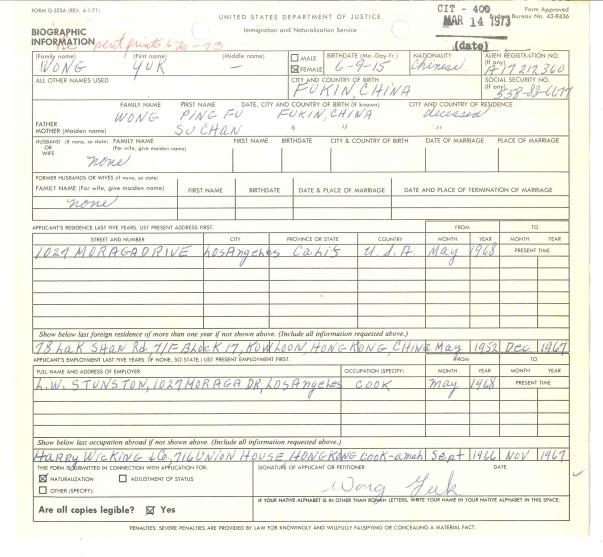 FORM G-325A (REV. 4-1-71)
UNITED STATES DEPARTMENT OF JUSTICE
Immigration and Naturalization Service
CIT - 400
MAR 14 1973
(date)
Form Approved
Budget Bureau No. 43-R436
BIOGRAPHIC
INFORMATION
sent prints 6/20-73
(Family name) (First name) (Middle name)
WONG YUK —
MALE
☒ FEMALE
BIRTHDATE (Mo.-Day-Yr.)
6-9-15
NATIONALITY
Chinese
ALIEN REGISTRATION NO.
(If any)
A17 212 360
ALL OTHER NAMES USED
CITY AND COUNTRY OF BIRTH
FUKIN, CHINA
SOCIAL SECURITY NO.
(If any)
558-88-6677
FAMILY NAME FIRST NAME DATE, CITY AND COUNTRY OF BIRTH (If known) CITY AND COUNTRY OF RESIDENCE
FATHER WONG PING FU FUKIN, CHINA deceased
MOTHER (Maiden name) SU CHAN " " "
HUSBAND (If none, so state) OR WIFE FAMILY NAME (For wife, give maiden name) FIRST NAME BIRTHDATE CITY & COUNTRY OF BIRTH DATE OF MARRIAGE PLACE OF MARRIAGE
none
FORMER HUSBANDS OR WIVES (If none, so state)
FAMILY NAME (For wife, give maiden name) FIRST NAME BIRTHDATE DATE & PLACE OF MARRIAGE DATE AND PLACE OF TERMINATION OF MARRIAGE
none
APPLICANT'S RESIDENCE LAST FIVE YEARS. LIST PRESENT ADDRESS FIRST. FROM TO
STREET AND NUMBER CITY PROVINCE OR STATE COUNTRY MONTH YEAR MONTH YEAR
1027 MORAGA DRIVE Los Angeles Calif U.S.A. May 1968 PRESENT TIME
Show below last foreign residence of more than one year if not shown above. (Include all information requested above.)
7B Lak Shan Rd, 7/F Block 17, KOWLOON, HONG KONG, CHINA May 1952 Dec. 1967
APPLICANT'S EMPLOYMENT LAST FIVE YEARS. (IF NONE, SO STATE.) LIST PRESENT EMPLOYMENT FIRST. FROM TO
FULL NAME AND ADDRESS OF EMPLOYER OCCUPATION (SPECIFY) MONTH YEAR MONTH YEAR
L.W. STUNSTON, 1027 MORAGA DR, Los Angeles COOK May 1968 PRESENT TIME
Show below last occupation abroad if not shown above. (Include all information requested above.)
HARRY WICKING & Co, 716 UNION HOUSE HONG KONG cook-amah Sept 1966 NOV 1967
THIS FORM IS SUBMITTED IN CONNECTION WITH APPLICATION FOR:
☒ NATURALIZATION ADJUSTMENT OF STATUS
OTHER (SPECIFY):
SIGNATURE OF APPLICANT OR PETITIONER DATE
Wong Yuk
IF YOUR NATIVE ALPHABET IS IN OTHER THAN ROMAN LETTERS, WRITE YOUR NAME IN YOUR NATIVE ALPHABET IN THIS SPACE.
Are all copies legible? ☒ Yes
PENALTIES: SEVERE PENALTIES ARE PROVIDED BY LAW FOR KNOWINGLY AND WILLFULLY FALSIFYING OR CONCEALING A MATERIAL FACT.